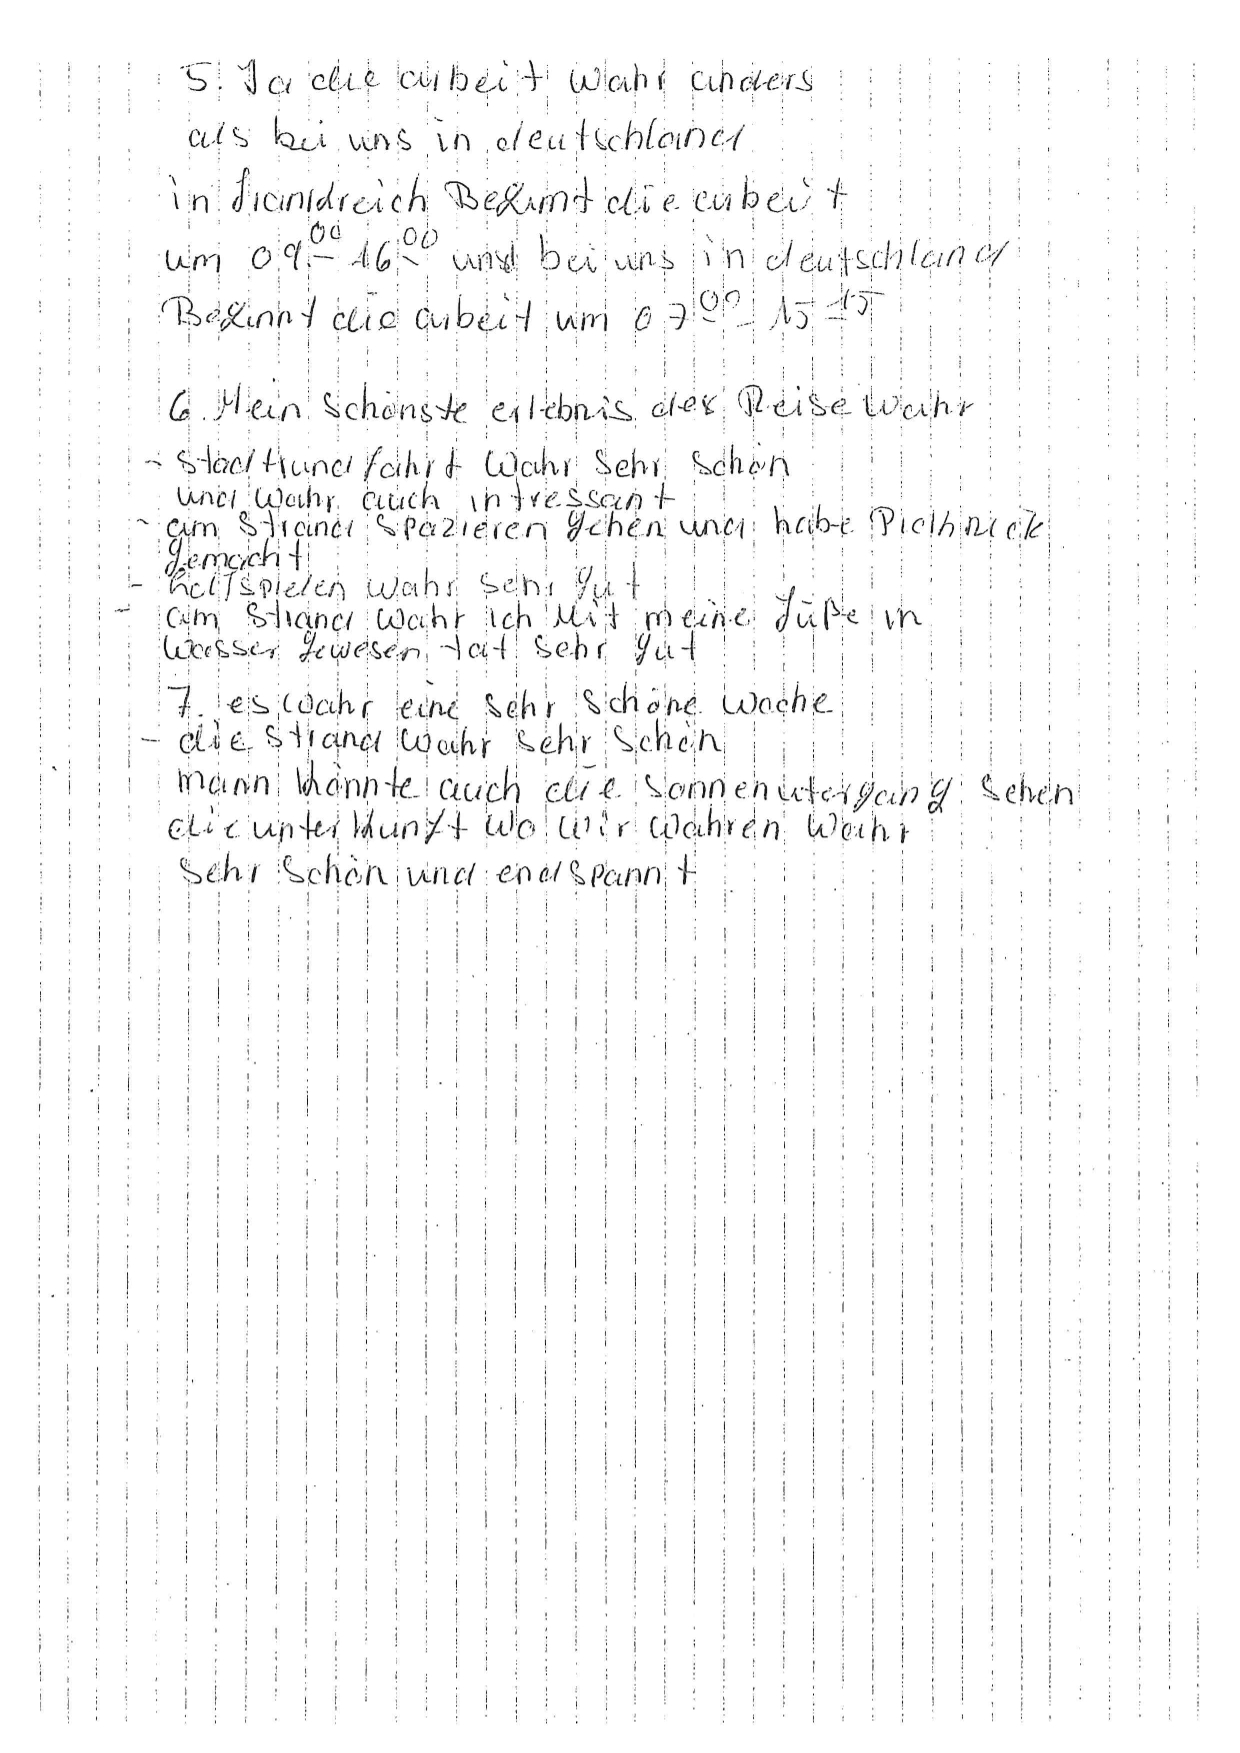 5. Ja die arbeit wahr anders
als bei uns in deutschland
in frankreich Beginnt die arbeit
um 09 00 - 16 00 und bei uns in deutschland
Beginnt die arbeit um 07 00 - 15 15
6. Mein Schönste erlebnis der Reise wahr
- Stadtrundfahrt wahr Sehr Schön
und wahr auch intressant
- am Strand Spazieren gehen und habe
gemacht
- wahr Sehr gut
- am Strand wahr ich Mit meine füße in
Wasser gewesen tat Sehr gut
7. es wahr eine Sehr Schöne Woche
- die Strand wahr Sehr Schön
mann könnte auch die Sonnenutergang Sehen
die unterkunft wo wir wahren wahr
Sehr Schön und endspannt